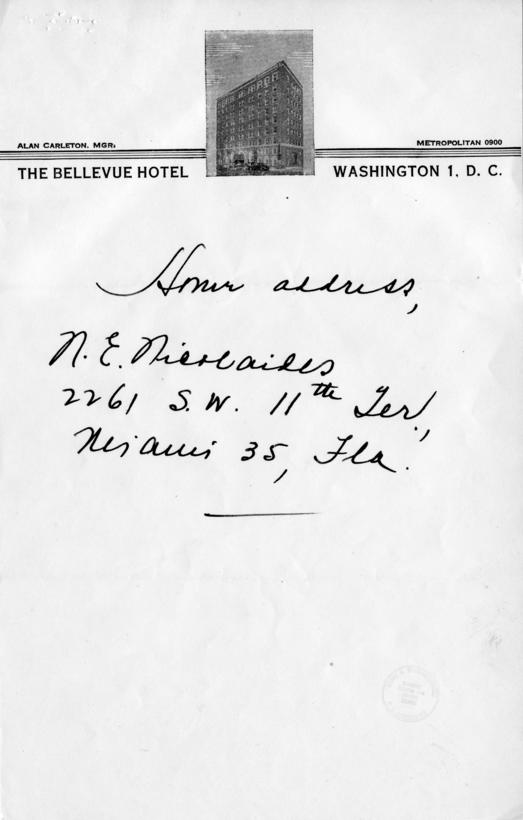 ALAN CARLETON, MGR.
METROPOLITAN 0900
THE BELLEVUE HOTEL
WASHINGTON 1, D. C.
Home address,
N. E. Nicolaides
2261 S. W. 11th Ter.,
Miami 35, Fla.